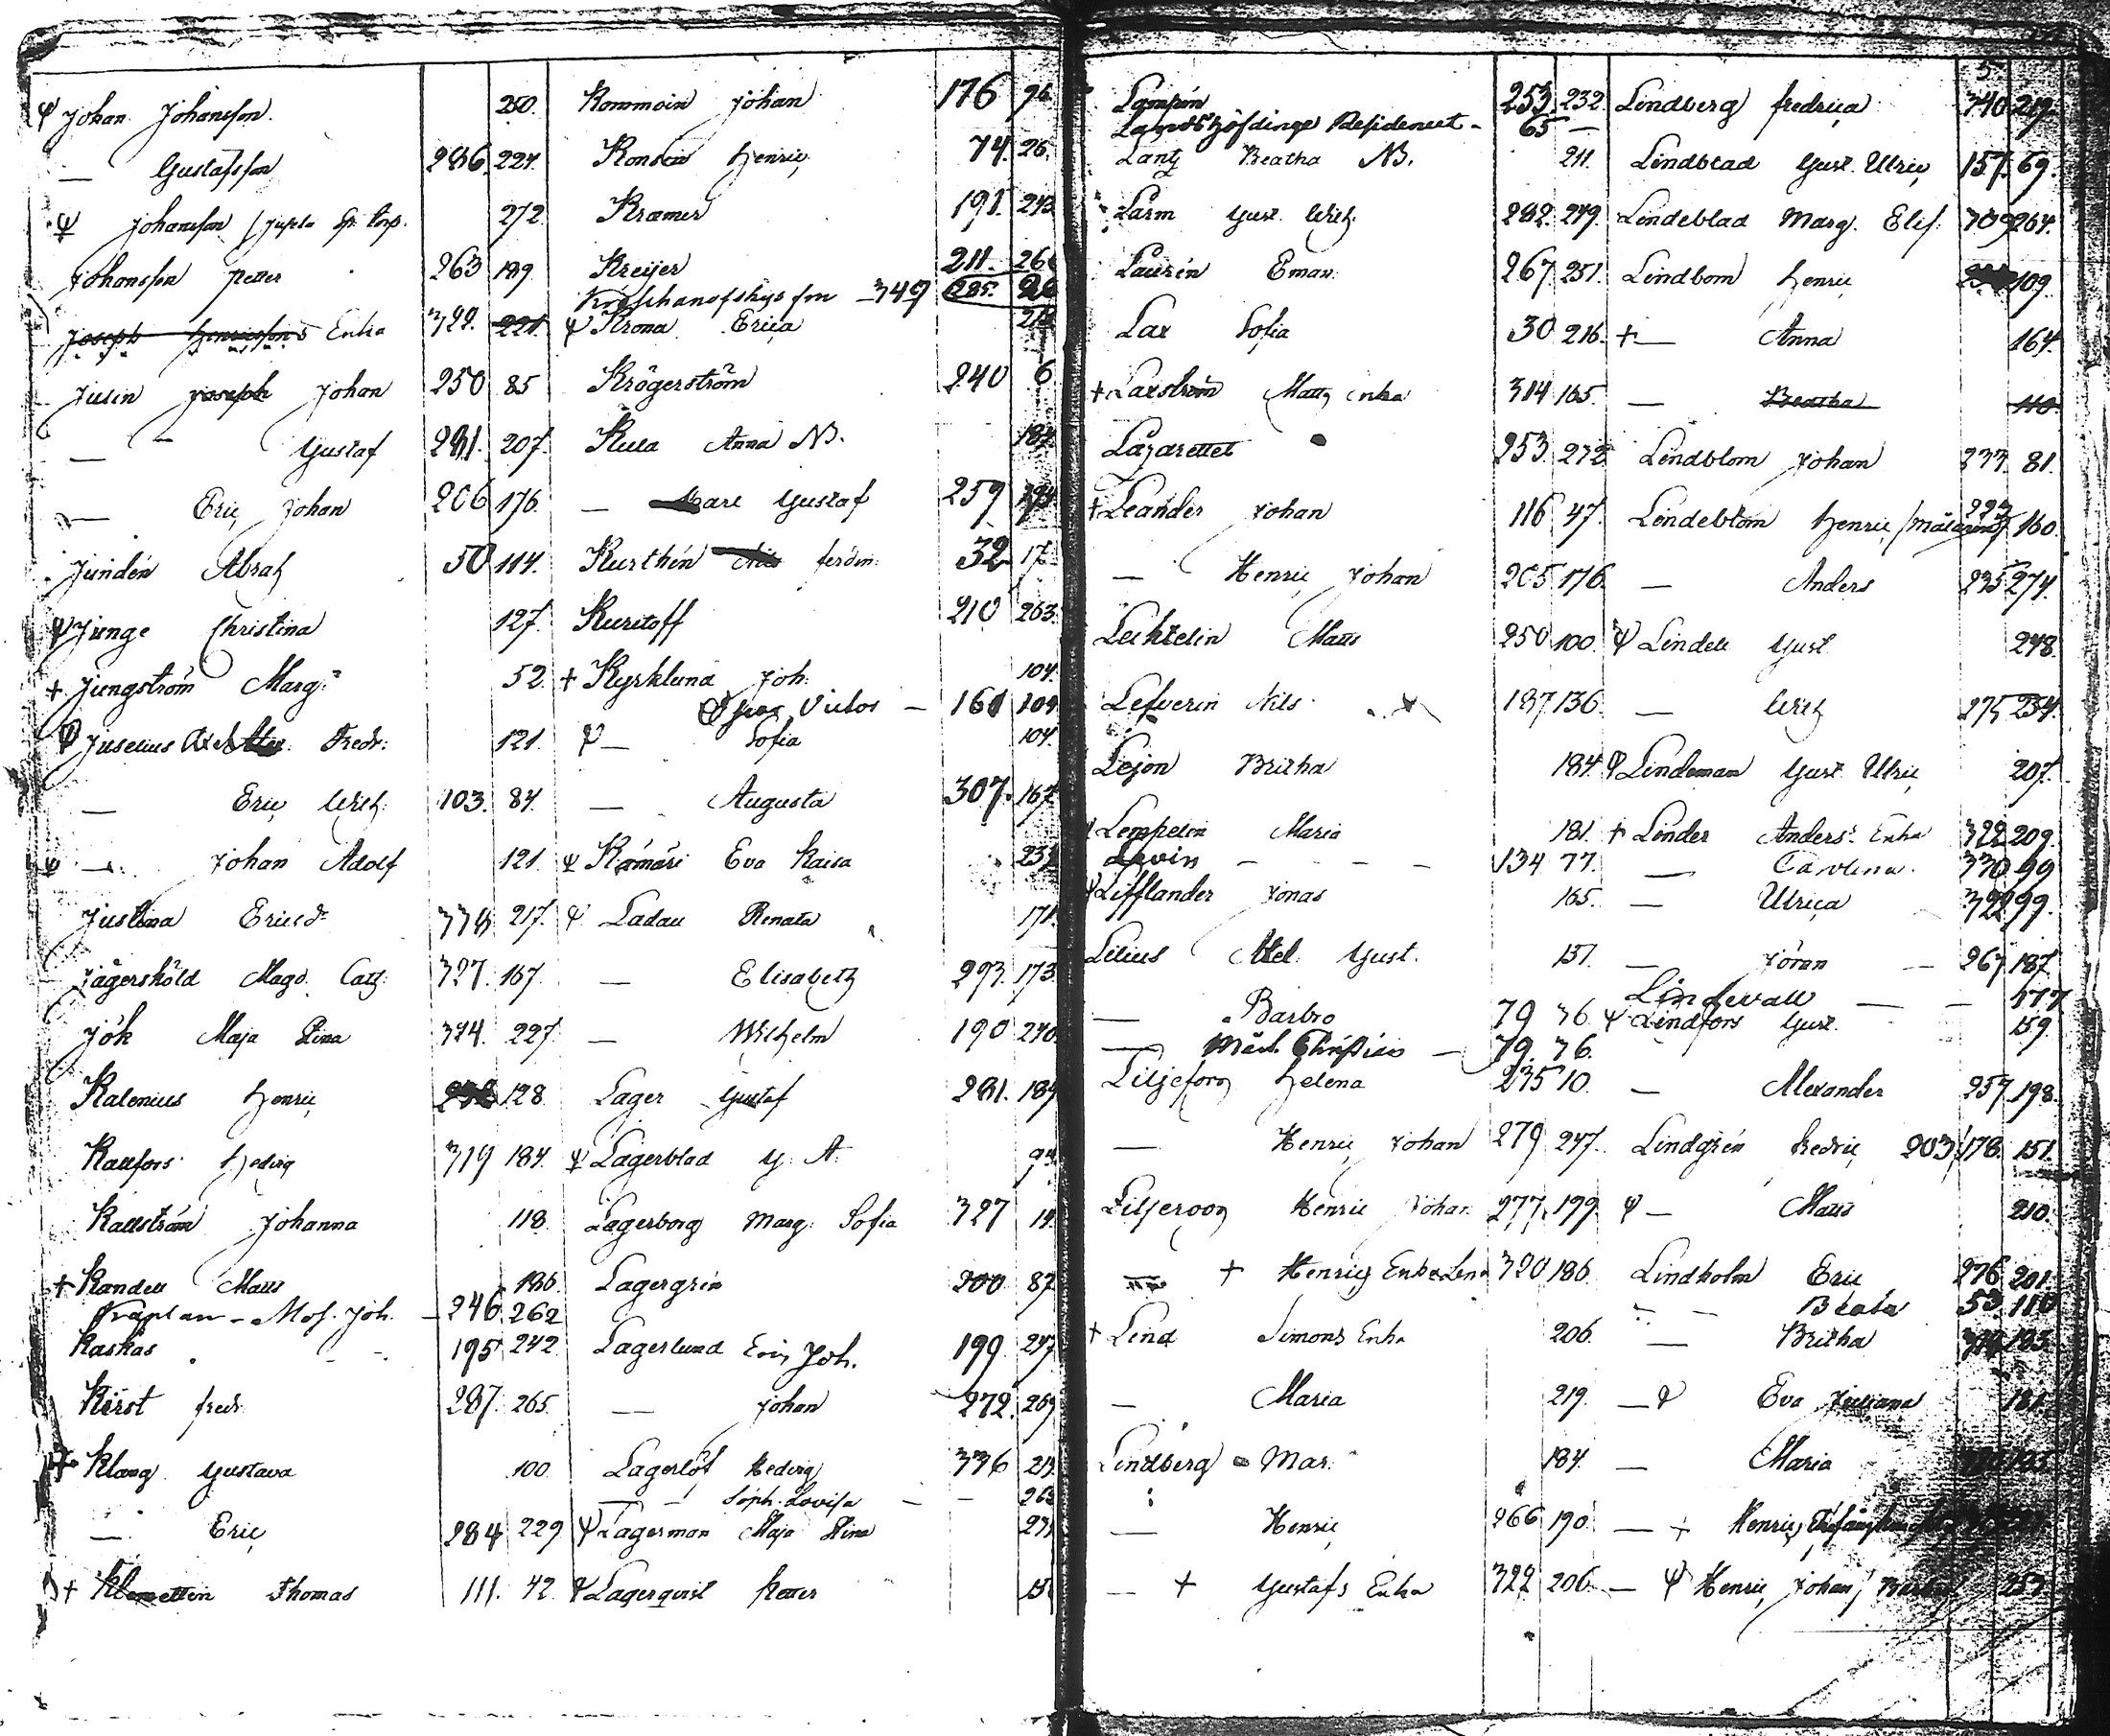 Ψ Johan Johansson. 250.
— Gustafsson 286. 227.
Ψ Johansson 272.
Johansson Petter 263 189.
Joseph Henricssons Enka 322. 221.
Julin Joseph Johan 250 85
— — Gustaf 281. 207.
— Eric Johan 206 176.
Jundén Abrah 50 114.
Ψ Junge Christina 127.
+ Jungström Marg: 52.
Ψ Juselius Axel Fredr: 121.
— Eric Wilh: 103. 84.
Ψ — Johan Adolf 121.
Justina Ericsdr 338 217.
Jägersköld Magd. Cath: 327. 167.
Jök Maja Stina 344. 227.
Kalenius Henric 128.
Kallfors Hedvig 319 184.
Kallström Johanna 118.
+ Kandell Matts 186.
Kraplan - Mos. Joh. — 246. 262
Kaskas 195 242
Kerst Fredr. 287. 265.
Klang Gustava 100.
— Eric 284 229
+ Klemettin Thomas 111. 42.
Kommoin Johan 176 96
Konsin Henric 74. 26.
Kramer 191. 243
Kreijer 211. 266
349 285.
Ψ Krona Erica 218
Krögerström 240 6.
Kula Anna N. 184.
— Carl Gustaf 259
Kurthén Ferdin: 32 17
Kuritoff 210 263.
+ Kyrklund Joh. 104.
Victor — 161 109
Ψ — Sofia 104.
— Augusta 307. 167
Ψ Kämäri Eva Kaisa 231
Ψ Ladau Renata 171.
— Elisabeth 293. 173.
— Wilhelm 190 270.
Lager Gustaf 281. 189
Ψ Lagerblad G. A. 94
Lagerborg Marg: Sofia 327 14.
Lagergrén 200 87
Lagerlund Eric Joh. 199 247
— Johan 272. 269
Lagerlöf Hedvig 336 213
— — Soph. Lovisa — — 263
Ψ Lagerman Maja Stina 231
Ψ Lagerqvist Petter 151
Lampén 253 232.
Landshöfdinge Residencet - 65 —
Lang Beatha N. 211.
Larm Gust. Wilh 282. 249.
Laurén Eman: 267 251.
Lax Sofia 30 216.
+ Laxström Matts Enka 314 165.
Lazarettet 253. 272
+ Leander Johan 116 47.
— Henric Johan 205 176.
Lechtelin Matts 250 100.
Lefverin Nils 187 136.
Lejon Britha 184.
Lempelin Maria 181.
Levin — — — 134 77.
Ψ Lifflander Jonas 165.
Lilius Abel Gust. 151.
— Barbro 79 76
— Christian — 79. 76.
Liljefors Helena 235 10.
— Henric Johan 279 247.
Liljeroos Henric Johan 277. 199
+ Henrics Enka Lena 320 186.
+ Lind Simons Enka 206.
— Maria 219.
Lindberg Mar: 184.
— Henric 266 190
— + Gustafs Enka 322 206.
Lindberg Fredrica 340 219.
Lindblad Gust. Ulric 157. 69.
Lindeblad Marg. Elis: 309 264.
Lindbom Henric 109.
+ — Anna 164.
— Beatha 110.
Lindblom Johan 233. 81.
Lindeblom Henric 160.
— Anders 235 274.
Ψ Lindell Gust 248.
— Wilh 275 234.
Ψ Lindeman Gust. Ulric 207.
+ Linder Anders: Enka 322 209.
— Carolina 330 99
— Ulrica 322 99.
— Jöran — 267 187
Lindevall — — 177
Ψ Lindfors Gust. 159.
— Alexander 257. 198.
Lindgrén Fredric 203 178. 151.
Ψ — Matts 210.
Lindholm Eric 276. 201.
— Beata 53. 110
— Britha 193.
— Ψ Eva Juliana 181.
— Maria
— + Henrics
— Ψ Henric Johan 253.